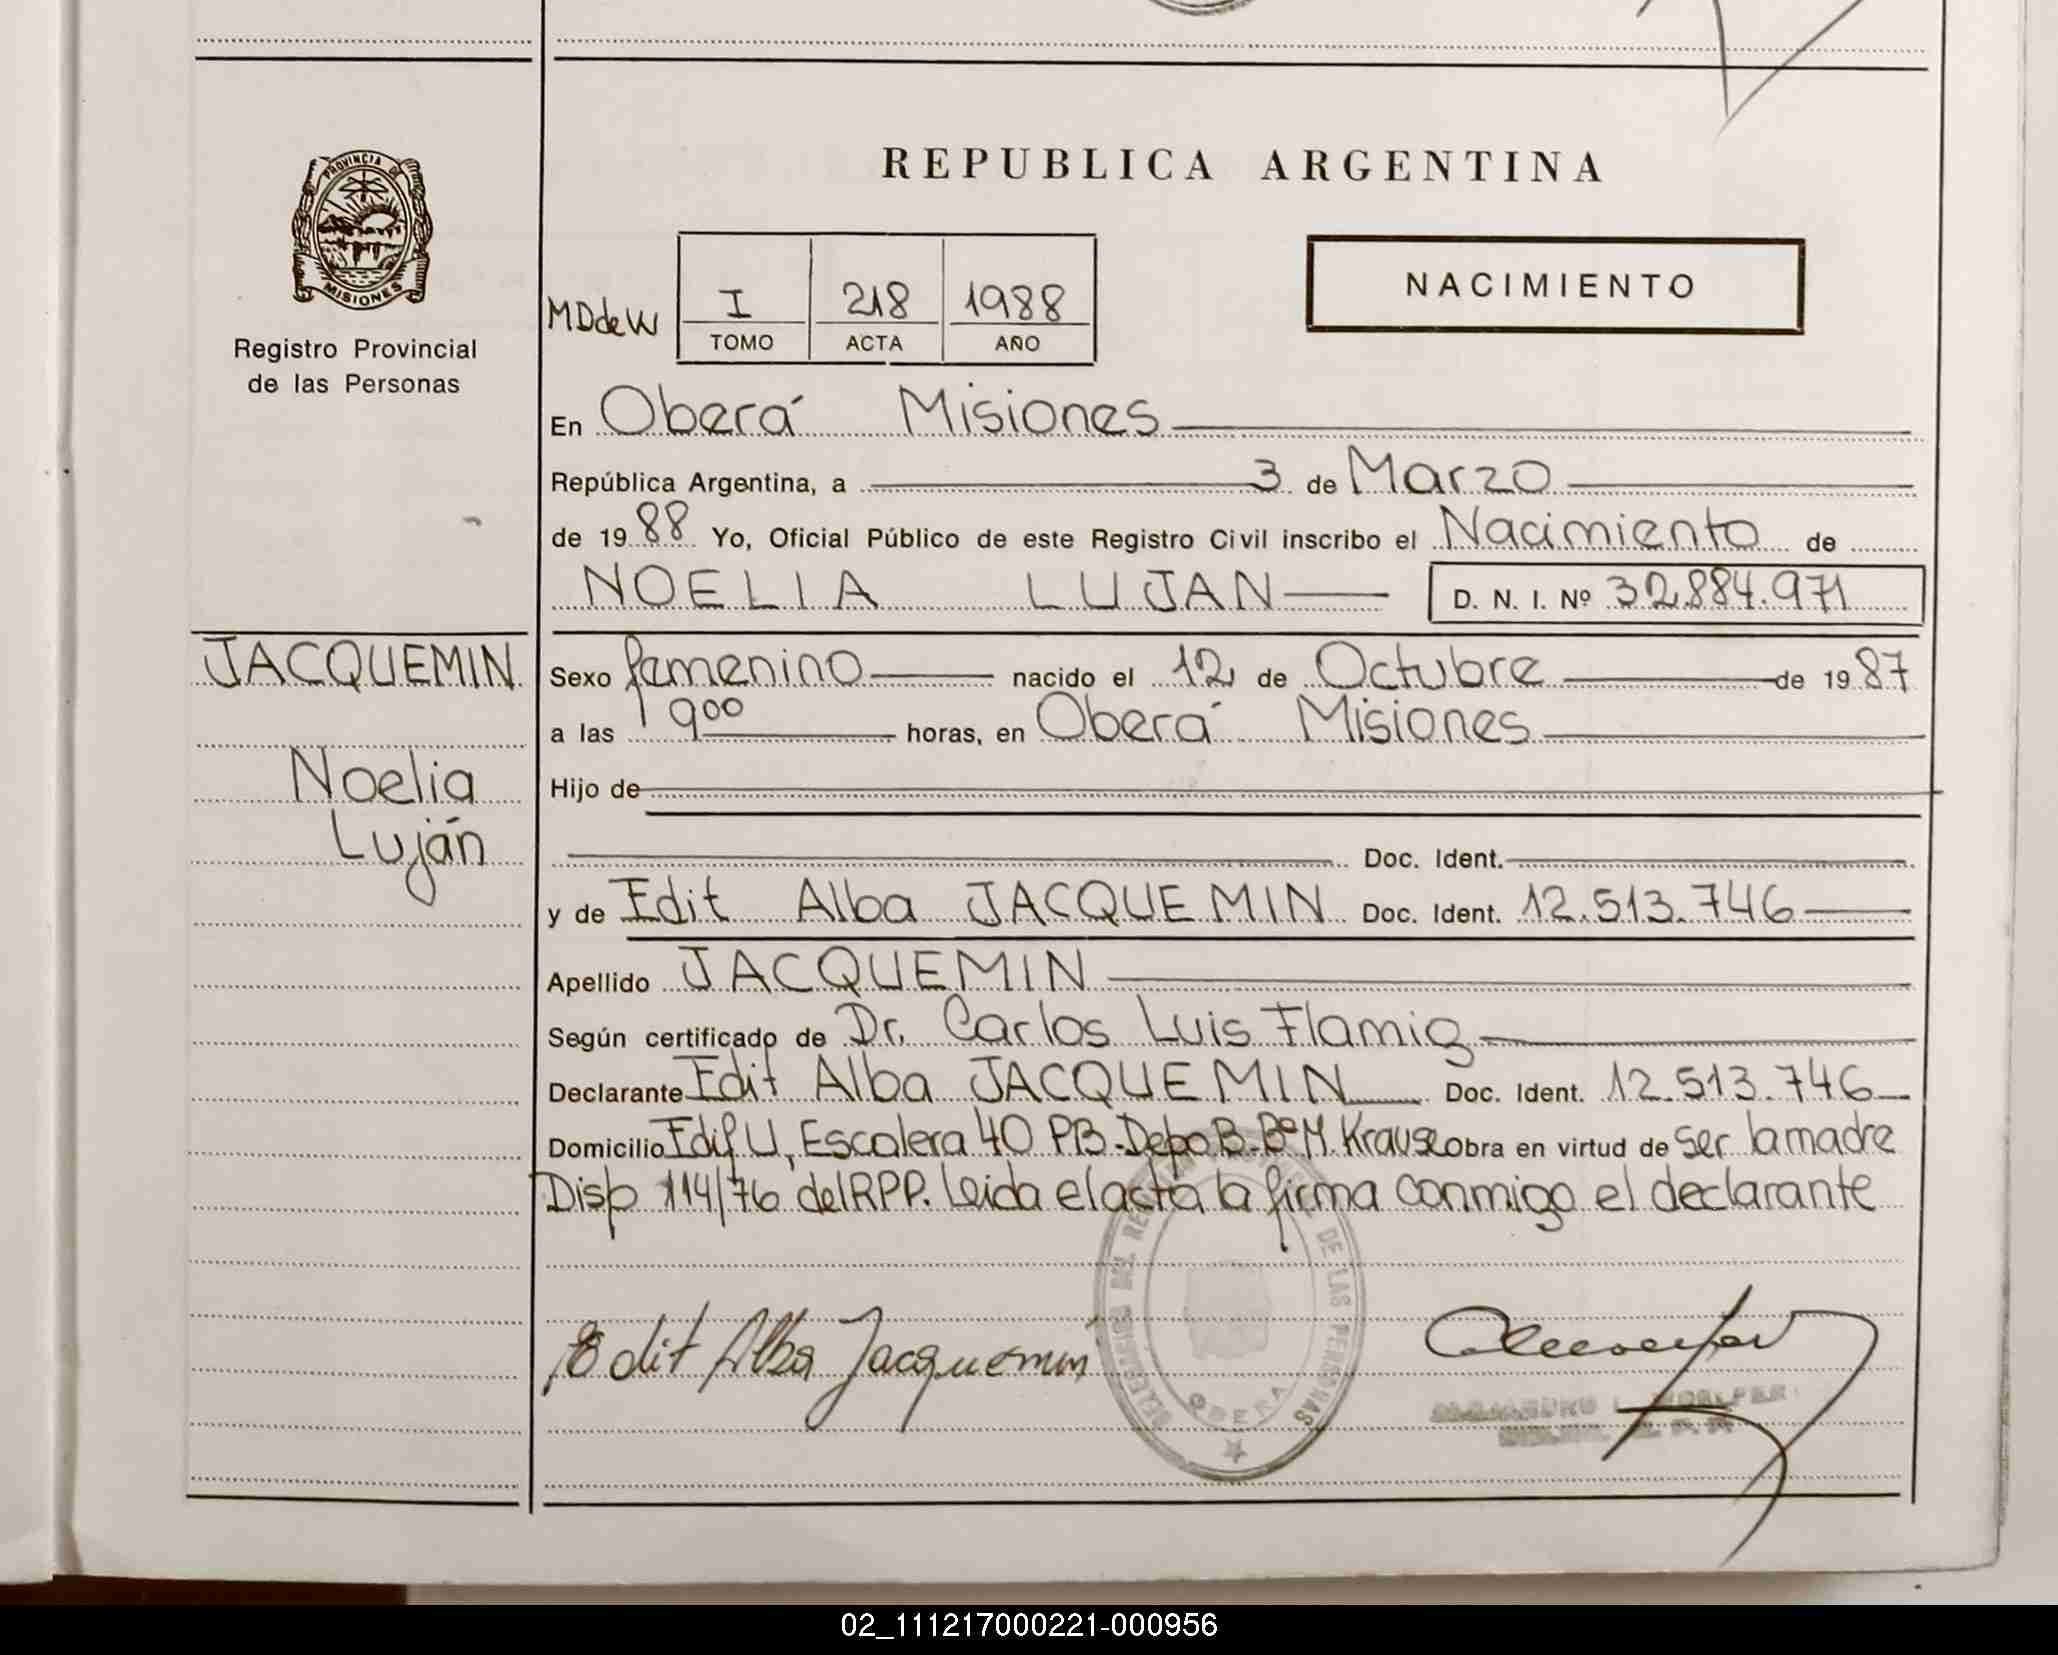 REPUBLICA ARGENTINA
PROVINCIA DE
MISIONES
Registro Provincial
de las Personas
NACIMIENTO
MDdeW
I 218 1988
TOMO ACTA AÑO
En Oberá Misiones
República Argentina, a 3 de Marzo
de 1988 Yo, Oficial Público de este Registro Civil inscribo el Nacimiento de
NOELIA LUJAN D. N. I. Nº 32.884.971
JACQUEMIN
Noelia
Luján
Sexo femenino nacido el 12 de Octubre de 1987
a las 1900 horas, en Oberá Misiones
Hijo de
Doc. Ident.
y de Edit Alba JACQUEMIN Doc. Ident. 12.513.746
Apellido JACQUEMIN
Según certificado de Dr. Carlos Luis Flamig
Declarante Edit Alba JACQUEMIN Doc. Ident. 12.513.746
Domicilio Edif U, Escalera 40 PB-Depo B-Bº M. Krause Obra en virtud de ser la madre
Disp 114/76 del RPP. Leida el acta la firma conmigo el declarante
Edit Alba Jacquemin
DEL DE LAS PERSONAS
OBERA